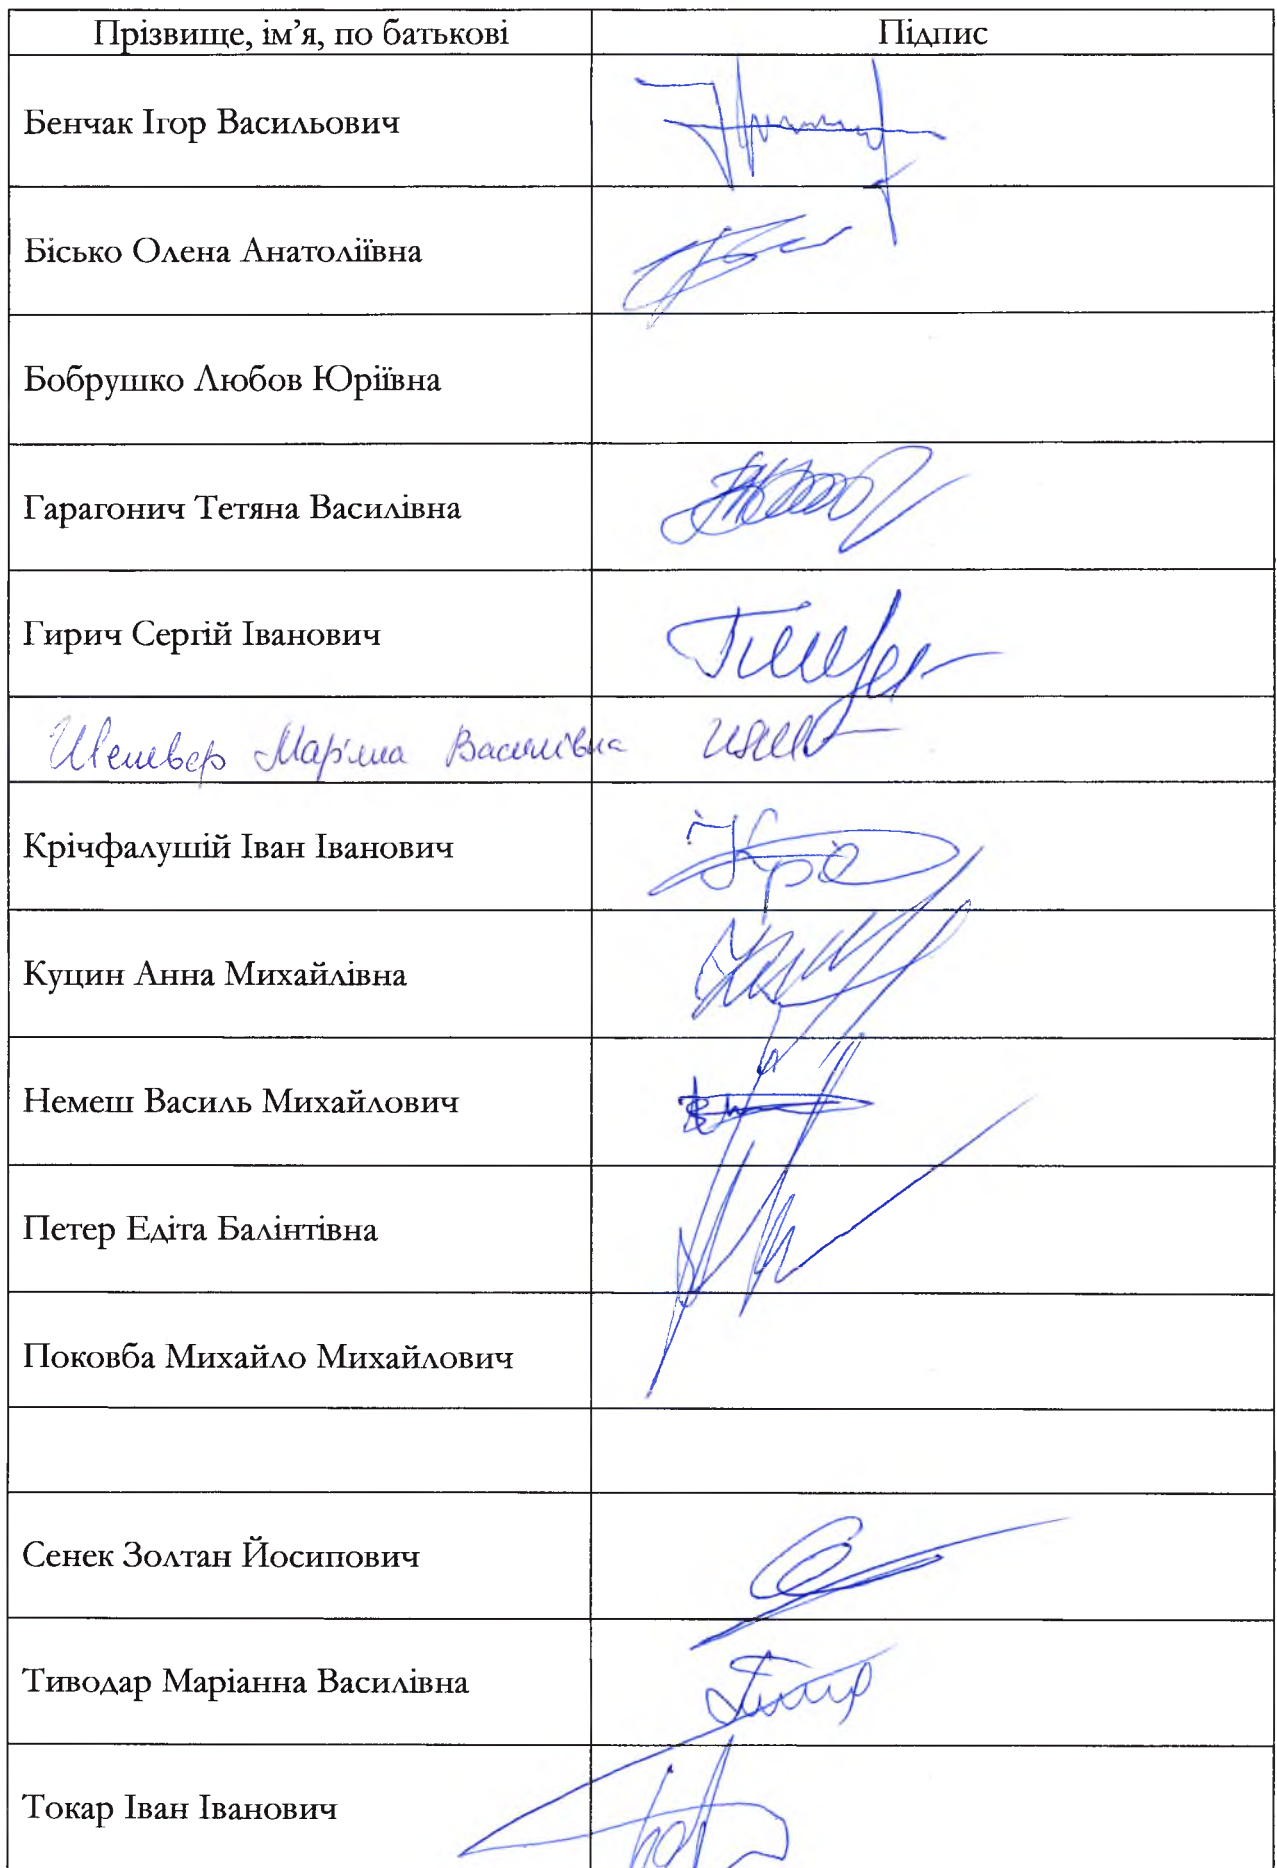 Прізвище, ім’я, по батькові Підпис
Бенчак Ігор Васильович
Бісько Олена Анатоліївна
Бобрушко Любов Юріївна
Гарагонич Тетяна Василівна
Гирич Сергій Іванович
Шелевер Мар'яна Василівна
Крічфалушій Іван Іванович
Куцин Анна Михайлівна
Немеш Василь Михайлович
Петер Едіта Балінтівна
Поковба Михайло Михайлович
Сенек Золтан Йосипович
Тиводар Маріанна Василівна
Токар Іван Іванович